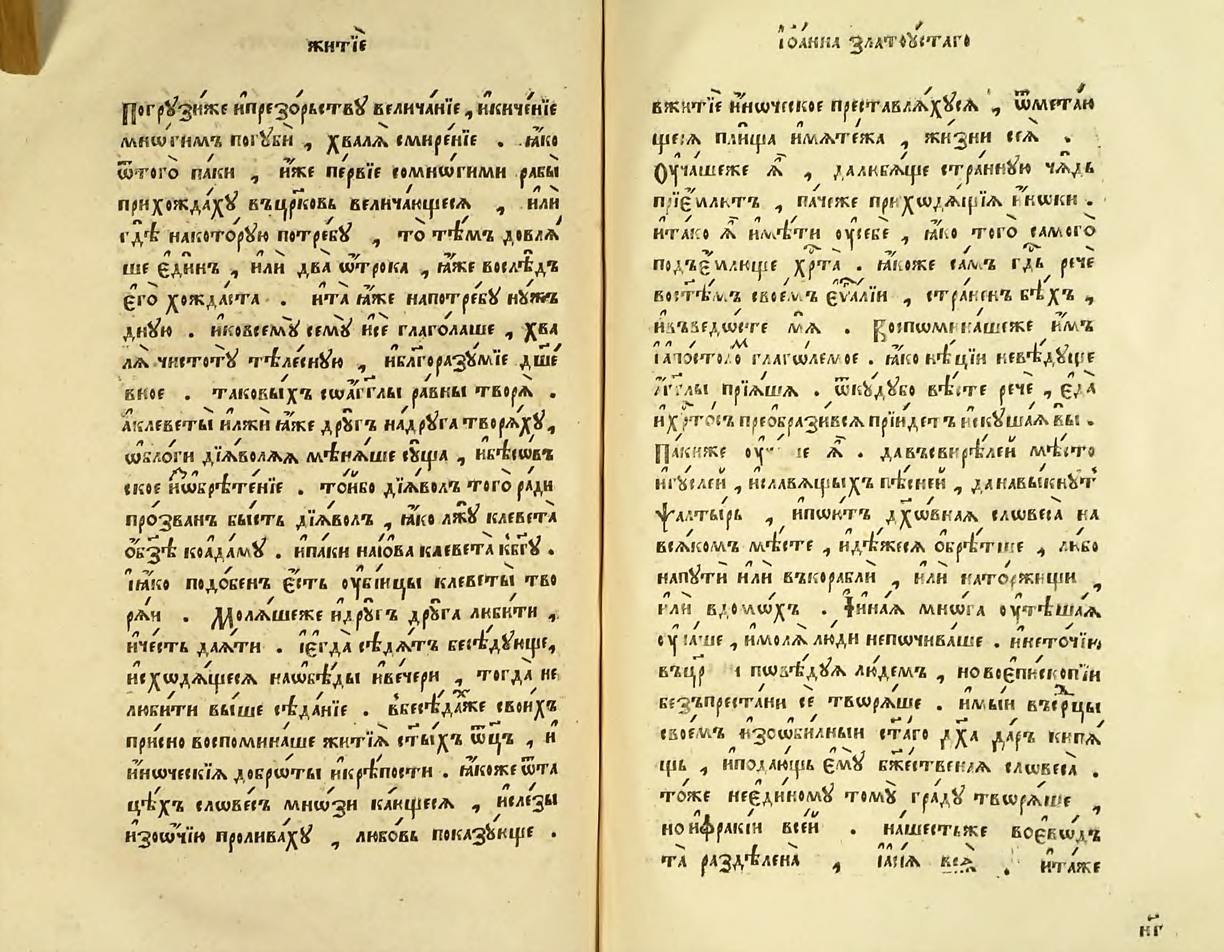 житїѐ
Погрꙋзи́же и҆презо́рьствꙋ вели́ча́нїе, и҆киче́нїе
мнѡги́мъ погꙋби̏, хвала̀ смире́нїе. ꙗ҆́ко
ѿтого̀ па́ки, и҆́же пе́рвїе сомнѡ́гими рабы̀
прихожда́хꙋ въцр҃ковь велича́ющеса̀, и҆лѝ
гдѣ̀ нако́тор́ꙋю потре́бꙋ, то̀ тѣ́мъ довлѧ́
ше є҆ди́нъ, и҆лѝ два̀ ѿ́трока, ꙗ҆̀же восле́дъ
є҆го̀ хожда́ста. и҆та̀ ꙗ҆́же напотре́бꙋ нꙋ́ж
днꙋю. и҆ковсемꙋ̀ семꙋ̀ и҆сѐ глаго́лаше, хва
лѧ̀ чистотꙋ̀ тѣле́снꙋю, и҆бл҃горазꙋ́мїе дш҃е́
вное. таковы́хъ соа҆́гг҃лы ра́вны творѧ̀.
а҆клеветы̀ и҆лжѝ ꙗ҆́же дрꙋ́гъ на́дрꙋга творѧ́хꙋ,
ѡ҆бло́ги дїѧ́волѧ мѣнѧ́ше сꙋ́ща, и҆бѣсѡ́в
ское и҆зѡбрѣте́нїе. то́йбо дїѧ́волъ того̀ ра́ди
про́званъ бы́сть дїѧ́волъ, ꙗ҆́ко лжꙋ̀ клевета̀
ѻ҆бз҃ѣ коа҆да́мꙋ. и҆па́ки наі҆́ова клевета̀ къ́бг҃ꙋ.
і҆ꙗ҆́ко подо́бенъ є҆́сть ᲂу҆бі́йцы клеветы̀ тво
рѧ́и. Молѧ́шеже и҆дрꙋ́гъ дрꙋ́га люби́ти,
и҆че́сть даѧ́ти. і҆є҆гда̀ сѣдѧ́тъ бесѣ́дꙋюще,
исходѧ́щесѧ наѡбѣ́ды и҆ве́чери, тогда̀ не
люби́ти вы́ше сѣда́нїе. вбесѣ́дахже свои́хъ
при́сно воспомина́ше житїѧ̀ ст҃ы́хъ ѻ҆тц҃ъ, и҆
и҆́нѡческїѧ добрѡ́ты и҆крѣ́пости. ꙗ҆́коже ѿта
цѣ́хъ слѡве́съ мнѡ́зи ка́ющесѧ, и҆сле́зы
и҆зоѡ҆чїю пролива́хꙋ, любо́вь показꙋ́юще.
і҆ѻа́нна златоꙋ́стаго
вжитїѐ и҆́нѡческое преставлѧ́хꙋсѧ, ѿмета́ю
щесѧ пли́ща и҆мѧте́жа, жи́зни сеѧ̀.
Оу҆ча́шеже ѧ҆̀, далибѧ́ше стра́ннꙋю чѧ́дь
прїє́млютъ, па́чеже приходѧ́щїѧ и҆́нѡки.
и҆та́ко ѧ҆̀ и҆мѣ́ти ᲂу҆себѐ, ꙗ҆́ко того̀ самого̀
подъе́млюще хр҇та̀. ꙗ҆́коже са́мъ гд҇ь речѐ
востѣ́мъ свое́мъ є҆ѵ҃а́лїи, стра́ненъ бѣ́хъ,
и҆въведо́сте мѧ̀. Воспѡмина́шеже и҆́мъ
і҆апо́столомъ глаго́лемое. ꙗ҆́ко нѣ́цїи невѣ́дꙋще
а҆́гг҃лы прїѧ́шѧ. ѿкꙋ́дꙋбо вѣ́сте речѐ, є҆да̀
и҆хр҇то́съ преѻбрази́всѧ прїи́детъ и҆скꙋша́ѧ вы̀.
Па́киже ѧ҆̀. да́въсвирѣ́лей мѣ́сто
и҆гꙋ́слей, и҆сла́вѧщыхъ пѣ́сней, данавы́кнꙋтъ
ѱалты́рь, и҆пою́тъ дх҃о́внаѧ слѡвеса̀ на
всѧ́комъ мѣ́сте, и҆дѣ́жесѧ ѻ҆брѣ́тше, ли́бо
напꙋтѝ и҆лѝ въкораблѝ, и҆лѝ нато́ржищи,
и҆лѝ вдомѡ́хъ. І҆и҆на́ѧ мнѡ́га ᲂу҆тѣша́ѧ
ᲂу҆ча́ше, и҆молѧ̀ лю́ди непочи́ваше. и҆нето́чїю
въцр҃ повѣ́дꙋѧ лю́демъ, новоє҆пископїи
безъпреста́ни сѐ твѡрѧ́ше. и҆мы́и въсе́рдцы
свое́мъ и҆зоби́лныи ст҃а́го дх҃а да́ръ кипѧ́
щь, и҆пода́ющь є҆мꙋ̀ бж҃е́ственаѧ слѡвеса̀.
то́же неє҆ди́номꙋ томꙋ̀ гра́дꙋ твѡрѧ́ше,
но и҆фракі́и все́й. на́шестьже воевѡ́дъ
та̀ раздѣлена̀, і҆а҆сі́ѧ всѧ̀. и҆та́же
н҃г